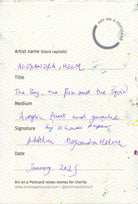 ART ON A POSTCARD
Artist name (block capitals)
ALEXANDRA, HOLM
Title
The Boy, the fish and the Squid
Medium
Acrylic Paint and gouache
Signature
Alexandra
Date
January 2025
Art on a Postcard raises money for charity
www.artonapostcard.com | @artonapostcard